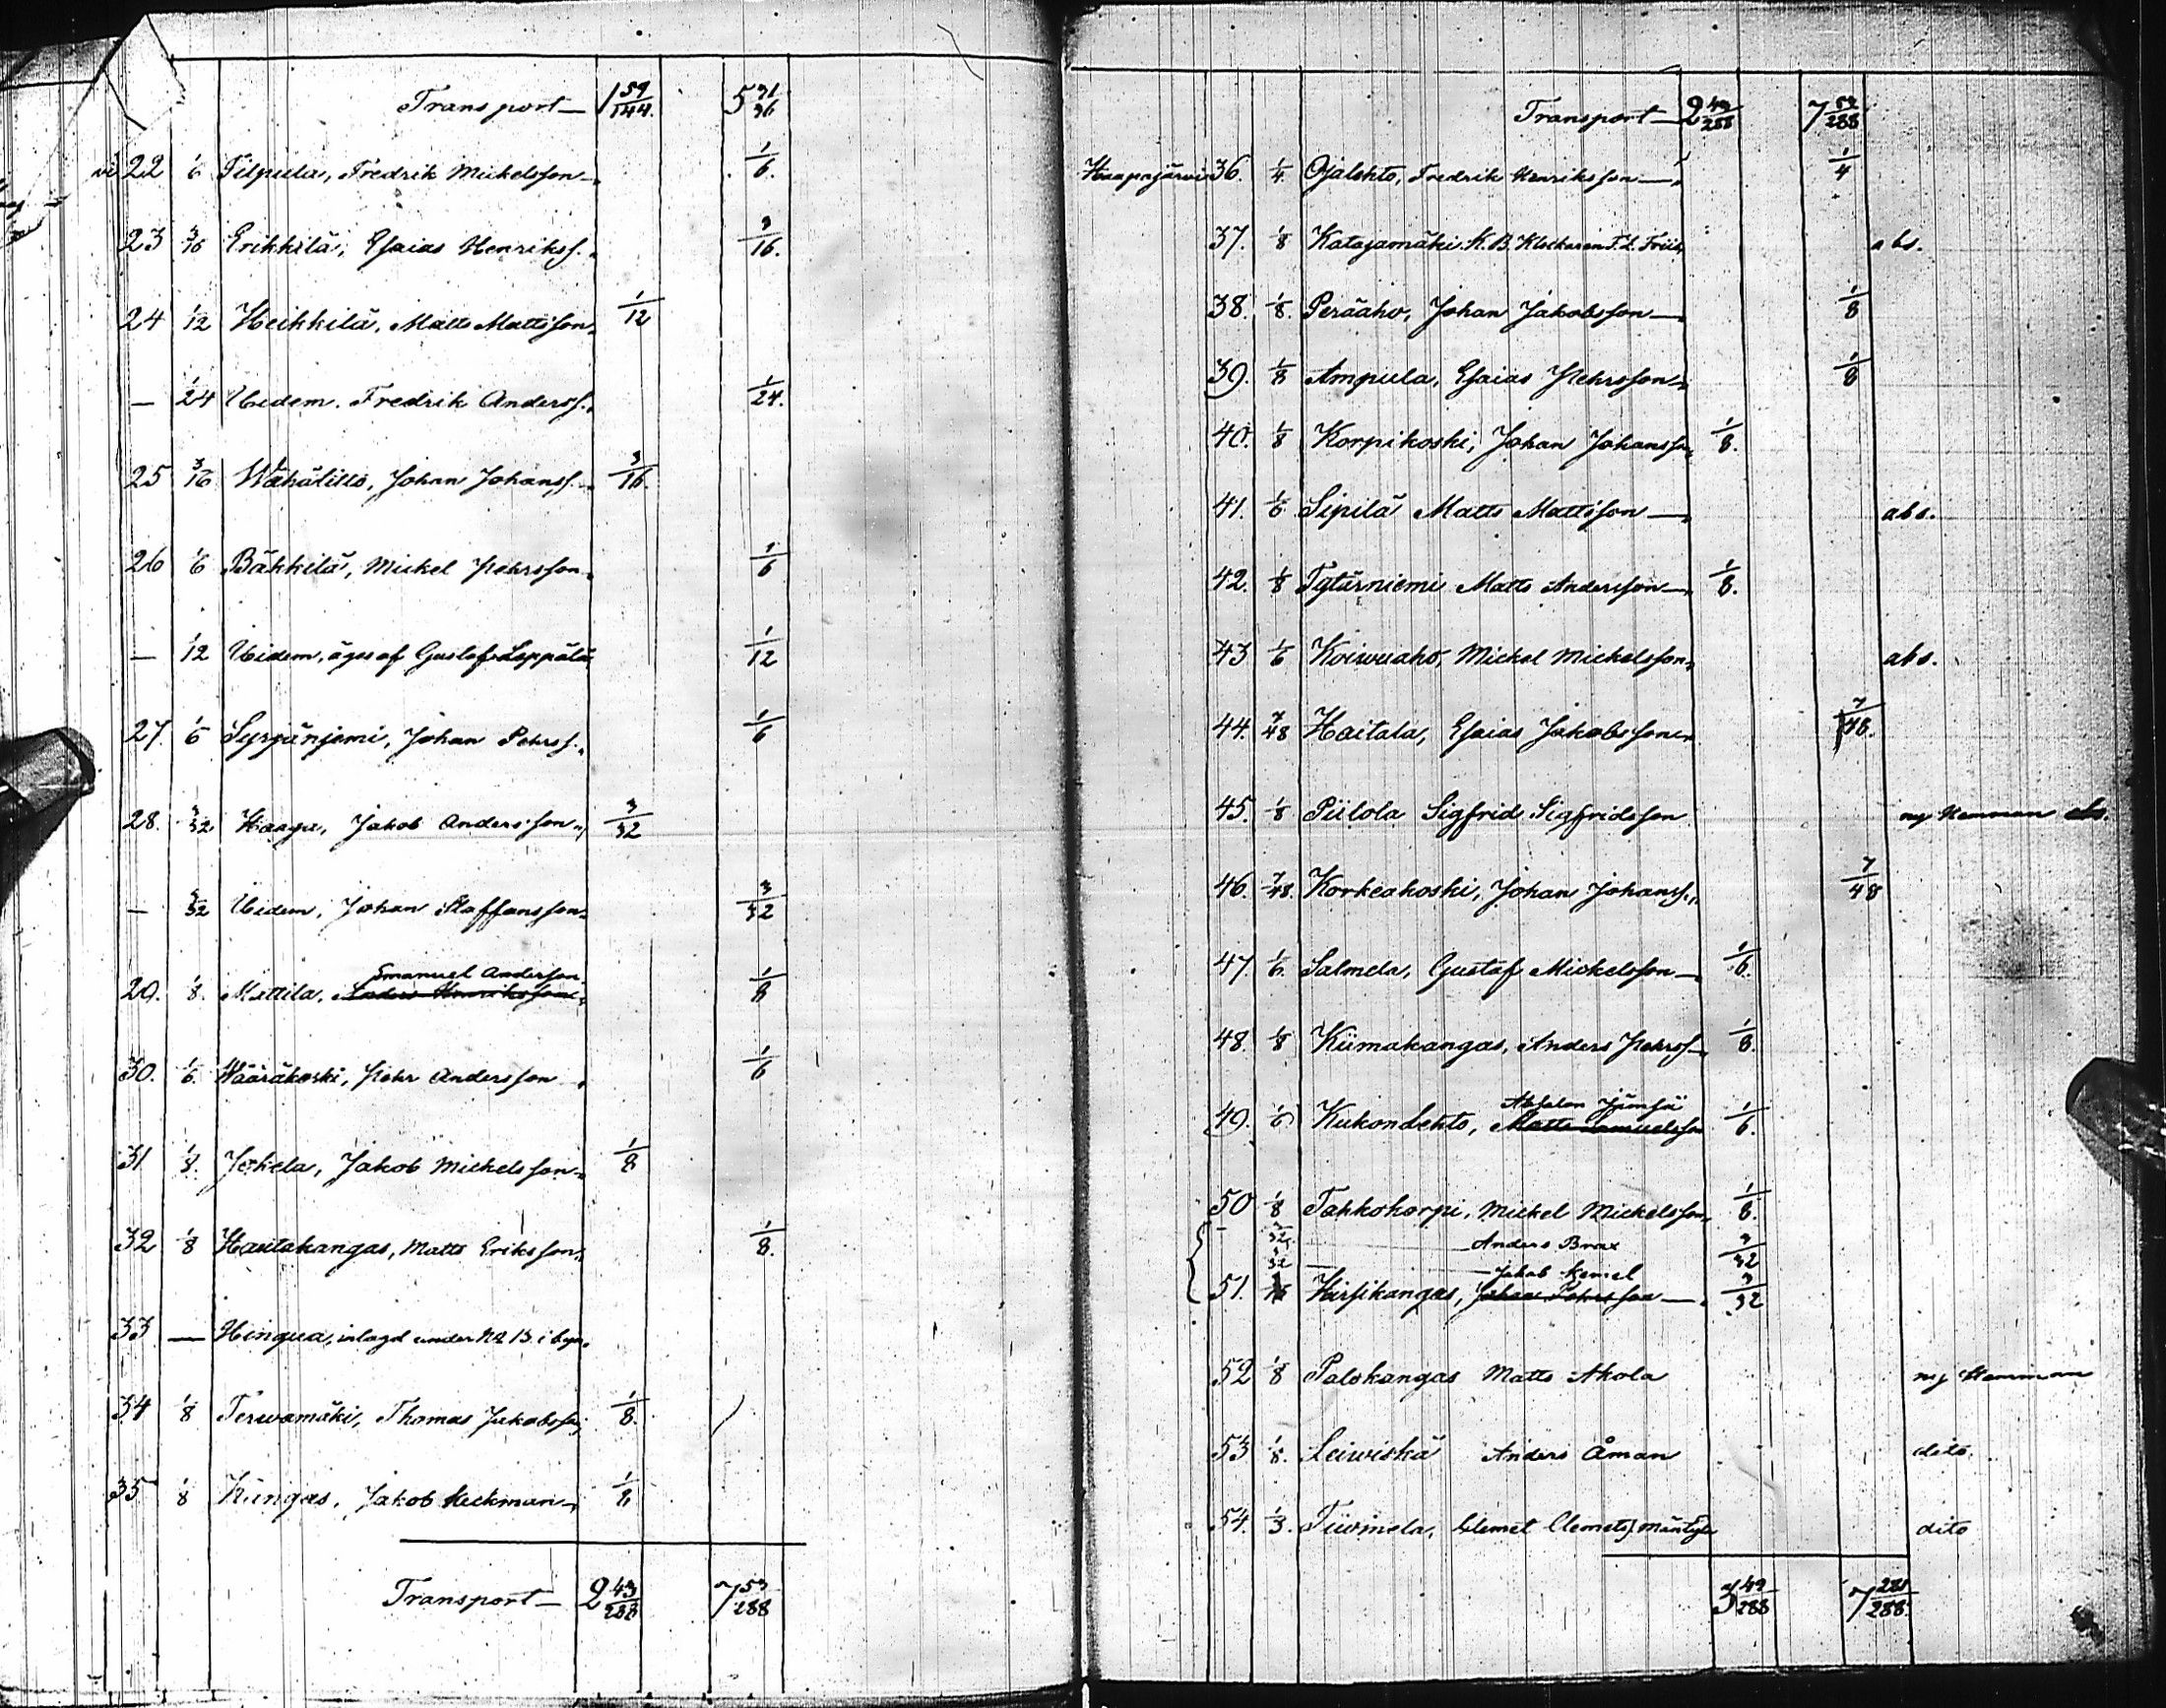 Transport — 1 59/144. 5 31/36
vi 22 1/6 Tilpula, Fredrik Mickelsson — 1/6.
23 3/16 Erikkilä, Esaias Henrikss. 3/16.
24 1/12 Heikkilä, Matts Mattsson 1/12
— 1/24 Ibidem. Fredrik Anderss. 1/24.
25 3/16 Wähälitto, Johan Johanss. 3/16.
26 1/6 Bähkilä, Mickel Pehrsson 1/6
— 1/12 Ibidem, äges af Gustaf Leppälä 1/12
27. 1/6 Syrjänjemi, Johan Pehrss. 1/6
28. 3/32 Haaga, Jakob Andersson 3/32
— 3/32 Ibidem, Johan Staffansson 3/32
Emanuel Andersson
29. 1/8. Mattila, Anders Henriksson 1/8
30. 1/6. Wääräkoski, Pehr Andersson 1/6
31 1/8. Jokela, Jakob Mickelsson 1/8
32 1/8 Hautakangas, Matts Eriksson 1/8.
33 — Hingua, inlagd under No 13. i byn.
34 1/8 Terwamäki, Thomas Jakobsson 1/8.
35 1/8 Kangas, Jakob Heckman 1/8
Transport — 2 43/288 7 53/288
Transport — 2 43/288 7 53/288
Haapajärvi 36. 1/4. Ojalehto, Fredrik Henriksson — 1/4
37. 1/8 Katajamäki. K. B. Klockaren F. L. abs.
38. 1/8. Perääho, Johan Jakobsson — 1/8
39. 1/8 Ampula, Esaias Pehrsson 1/8
40. 1/8 Korpikoski, Johan Johansson 1/8.
41. 1/6 Sipilä Matts Mattsson — abs.
42. 1/8 Tytärniemi Matts Andersson — 1/8.
43 1/6 Koiwuaho, Mickel Mickelsson abs.
44. 7/48 Haitala, Esaias Jakobsson 7/48.
45. 1/8 Piilola Sigfrid Sigfridsson ny Hemman abs.
46. 7/48. Korkeakoski, Johan Johanss. 7/48
47. 1/6. Salmela, Gustaf Mickelsson — 1/6.
48. 1/8 Kiimakangas, Anders Pehrss — 1/8.
Absalon Jämsä
49. 1/6 Kukonlehto, Matts Samuelsson 1/6.
50 1/8 Tahkokorpi, Mickel Mickelsson 1/8.
— 3/32. Anders Brax 3/32
3/32 — Jakob Kemel
51. 3/16 Hirsikangas, Johan Pehrsson — 3/32
52 1/8 Palokangas Matts Akola ny Hemman
53 1/8. Leiwiskä Anders Åman dito.
54. 1/3. Tiiwinela, Clemet Clemetss. Mäntylä dito
3 49/288 7 281/288.